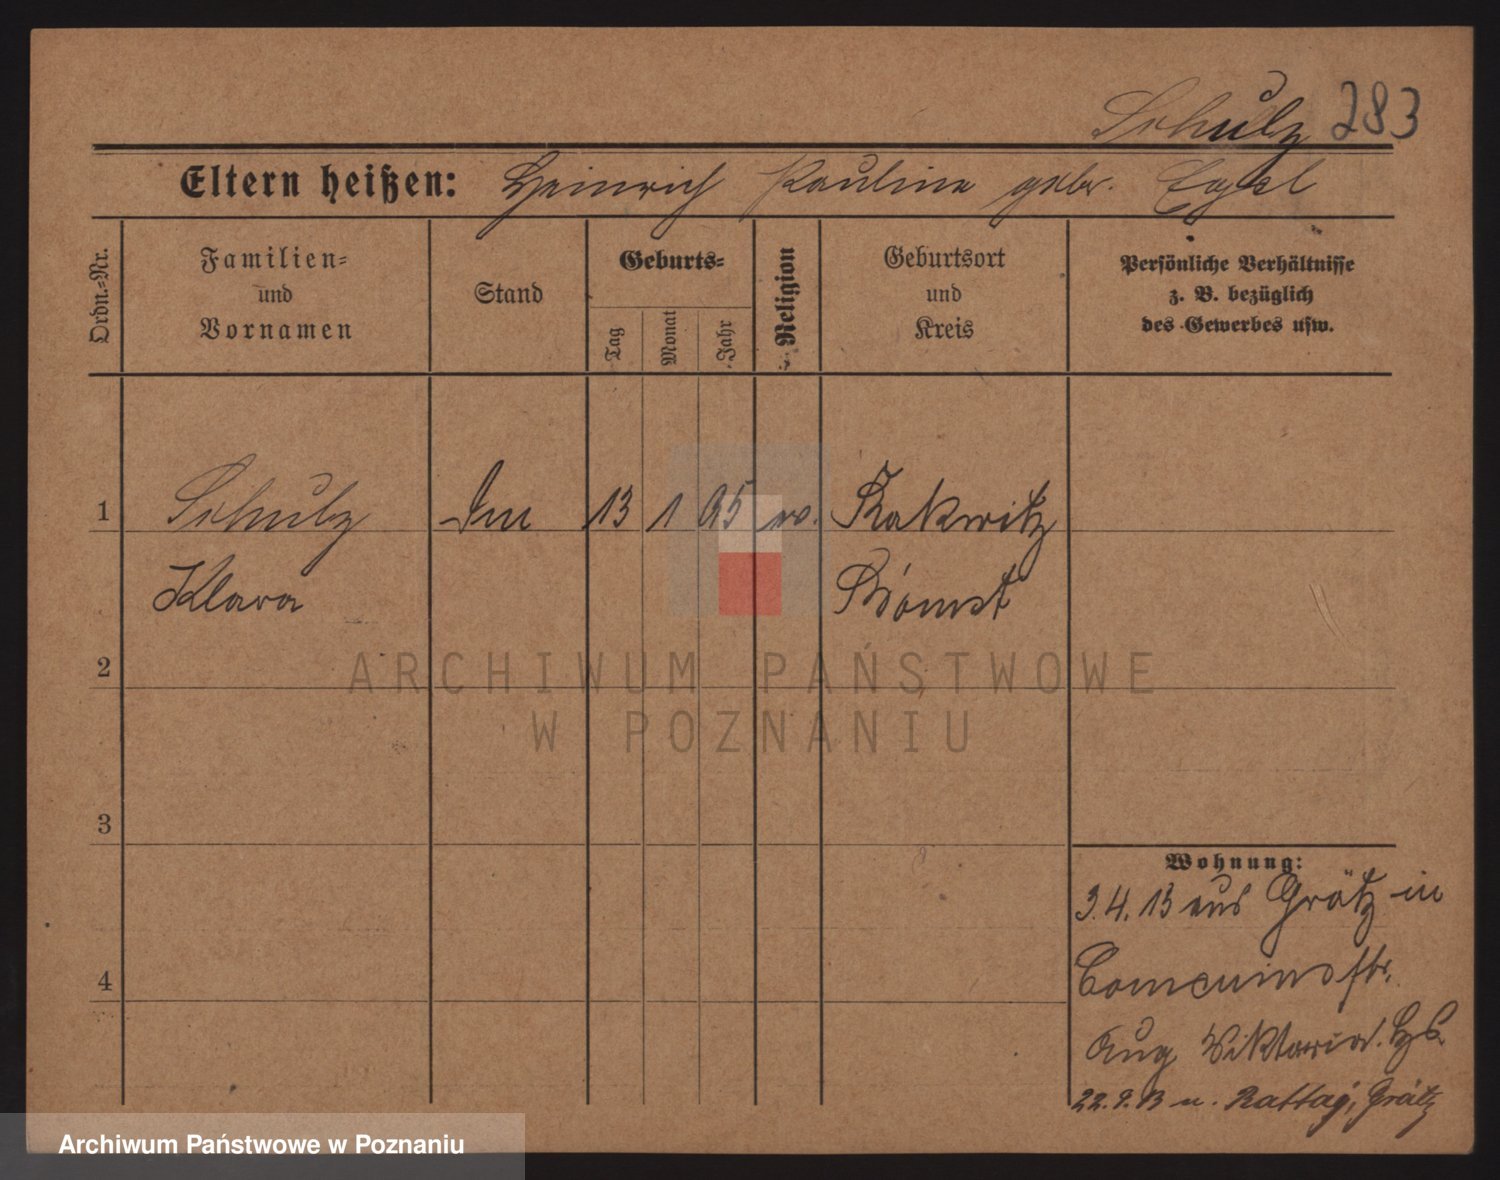 Schulz 283
Eltern heißen: Heinrich Pauline gebr. Egel
Ordn.-Nr.
Familien-
und
Vornamen
Stand
Geburts-
Tag
Monat
Jahr
Religion
Geburtsort
und
Kreis
Persönliche Verhältnisse
z. B. bezüglich
des Gewerbes usw.
1 Schulz 13 1 95 Rakwitz
Klara Bomst
2
ARCHIWUM PAŃSTWOWE
W POZNANIU
3
Wohnung:
3.4.13 aus Grätz in
4
Comeniusstr.
Aug Viktoria
22.9.13 n. Rattay, Grätz
Archiwum Państwowe w Poznaniu